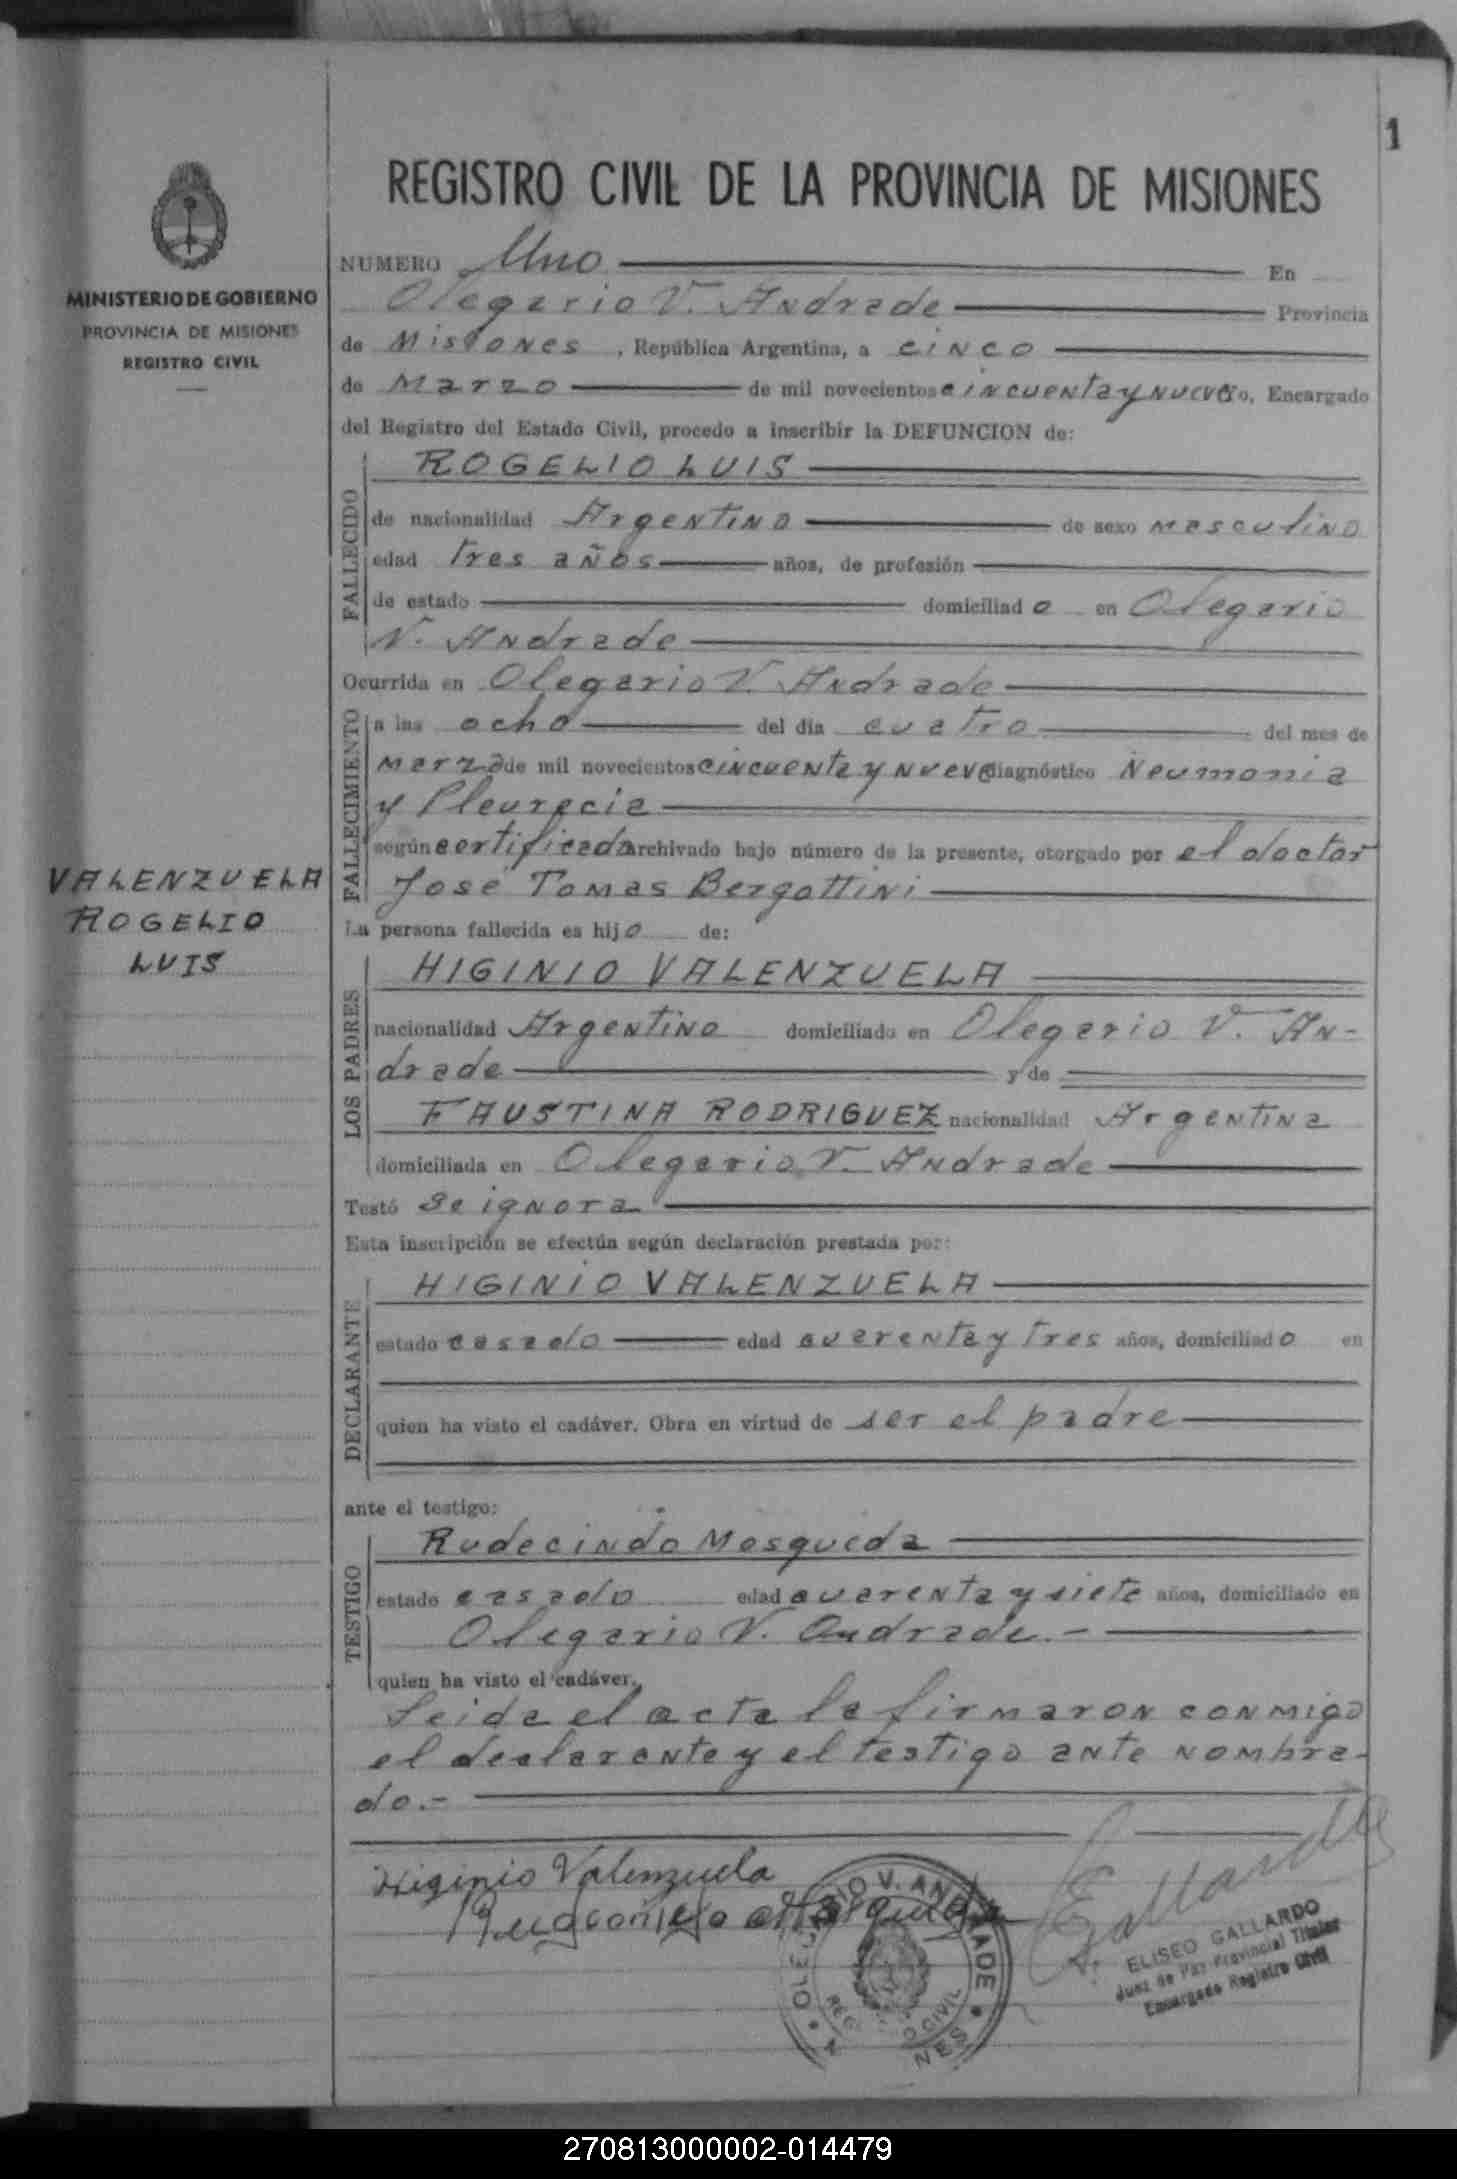 1
REGISTRO CIVIL DE LA PROVINCIA DE MISIONES
MINISTERIO DE GOBIERNO
PROVINCIA DE MISIONES
REGISTRO CIVIL
NUMERO Uno En
Olegario V. Andrade Provincia
de Misiones, República Argentina, a cinco
de Marzo de mil novecientos cincuenta y nueve yo, Encargado
del Registro del Estado Civil, procedo a inscribir la DEFUNCION de:
FALLECIDO
ROGELIO LUIS
de nacionalidad Argentino de sexo masculino
edad tres años años, de profesión
de estado domiciliado en Olegario
V. Andrade
Ocurrida en Olegario V. Andrade
FALLECIMIENTO
a las ocho del día cuatro del mes de
marzo de mil novecientos cincuenta y nueve diagnóstico Neumonia
y Pleurecia
según certificado archivado bajo número de la presente, otorgado por el doctor
José Tomas Bergottini
VALENZUELA
ROGELIO
LUIS
La persona fallecida es hijo de:
LOS PADRES
HIGINIO VALENZUELA
nacionalidad Argentino domiciliado en Olegario V. An-
drade y de
FAUSTINA RODRIGUEZ nacionalidad Argentina
domiciliada en Olegario V. Andrade
Testó se ignora
Esta inscripción se efectúa según declaración prestada por:
DECLARANTE
HIGINIO VALENZUELA
estado casado edad cuarenta y tres años, domiciliado en
quien ha visto el cadáver. Obra en virtud de ser el padre
ante el testigo:
TESTIGO
Rudecindo Mosqueda
estado casado edad cuarenta y siete años, domiciliado en
Olegario V. Andrade.-
quien ha visto el cadáver.
Leida el acta la firmaron conmigo
el declarante y el testigo ante nombra-
do.-
Higinio Valenzuela
OLEGARIO V. ANDRADE
O CIVIL
NES
E. Gallardo
ELISEO GALLARDO
Juez de Paz Provincial Titular
Encargado Registro Civil
270813000002-014479